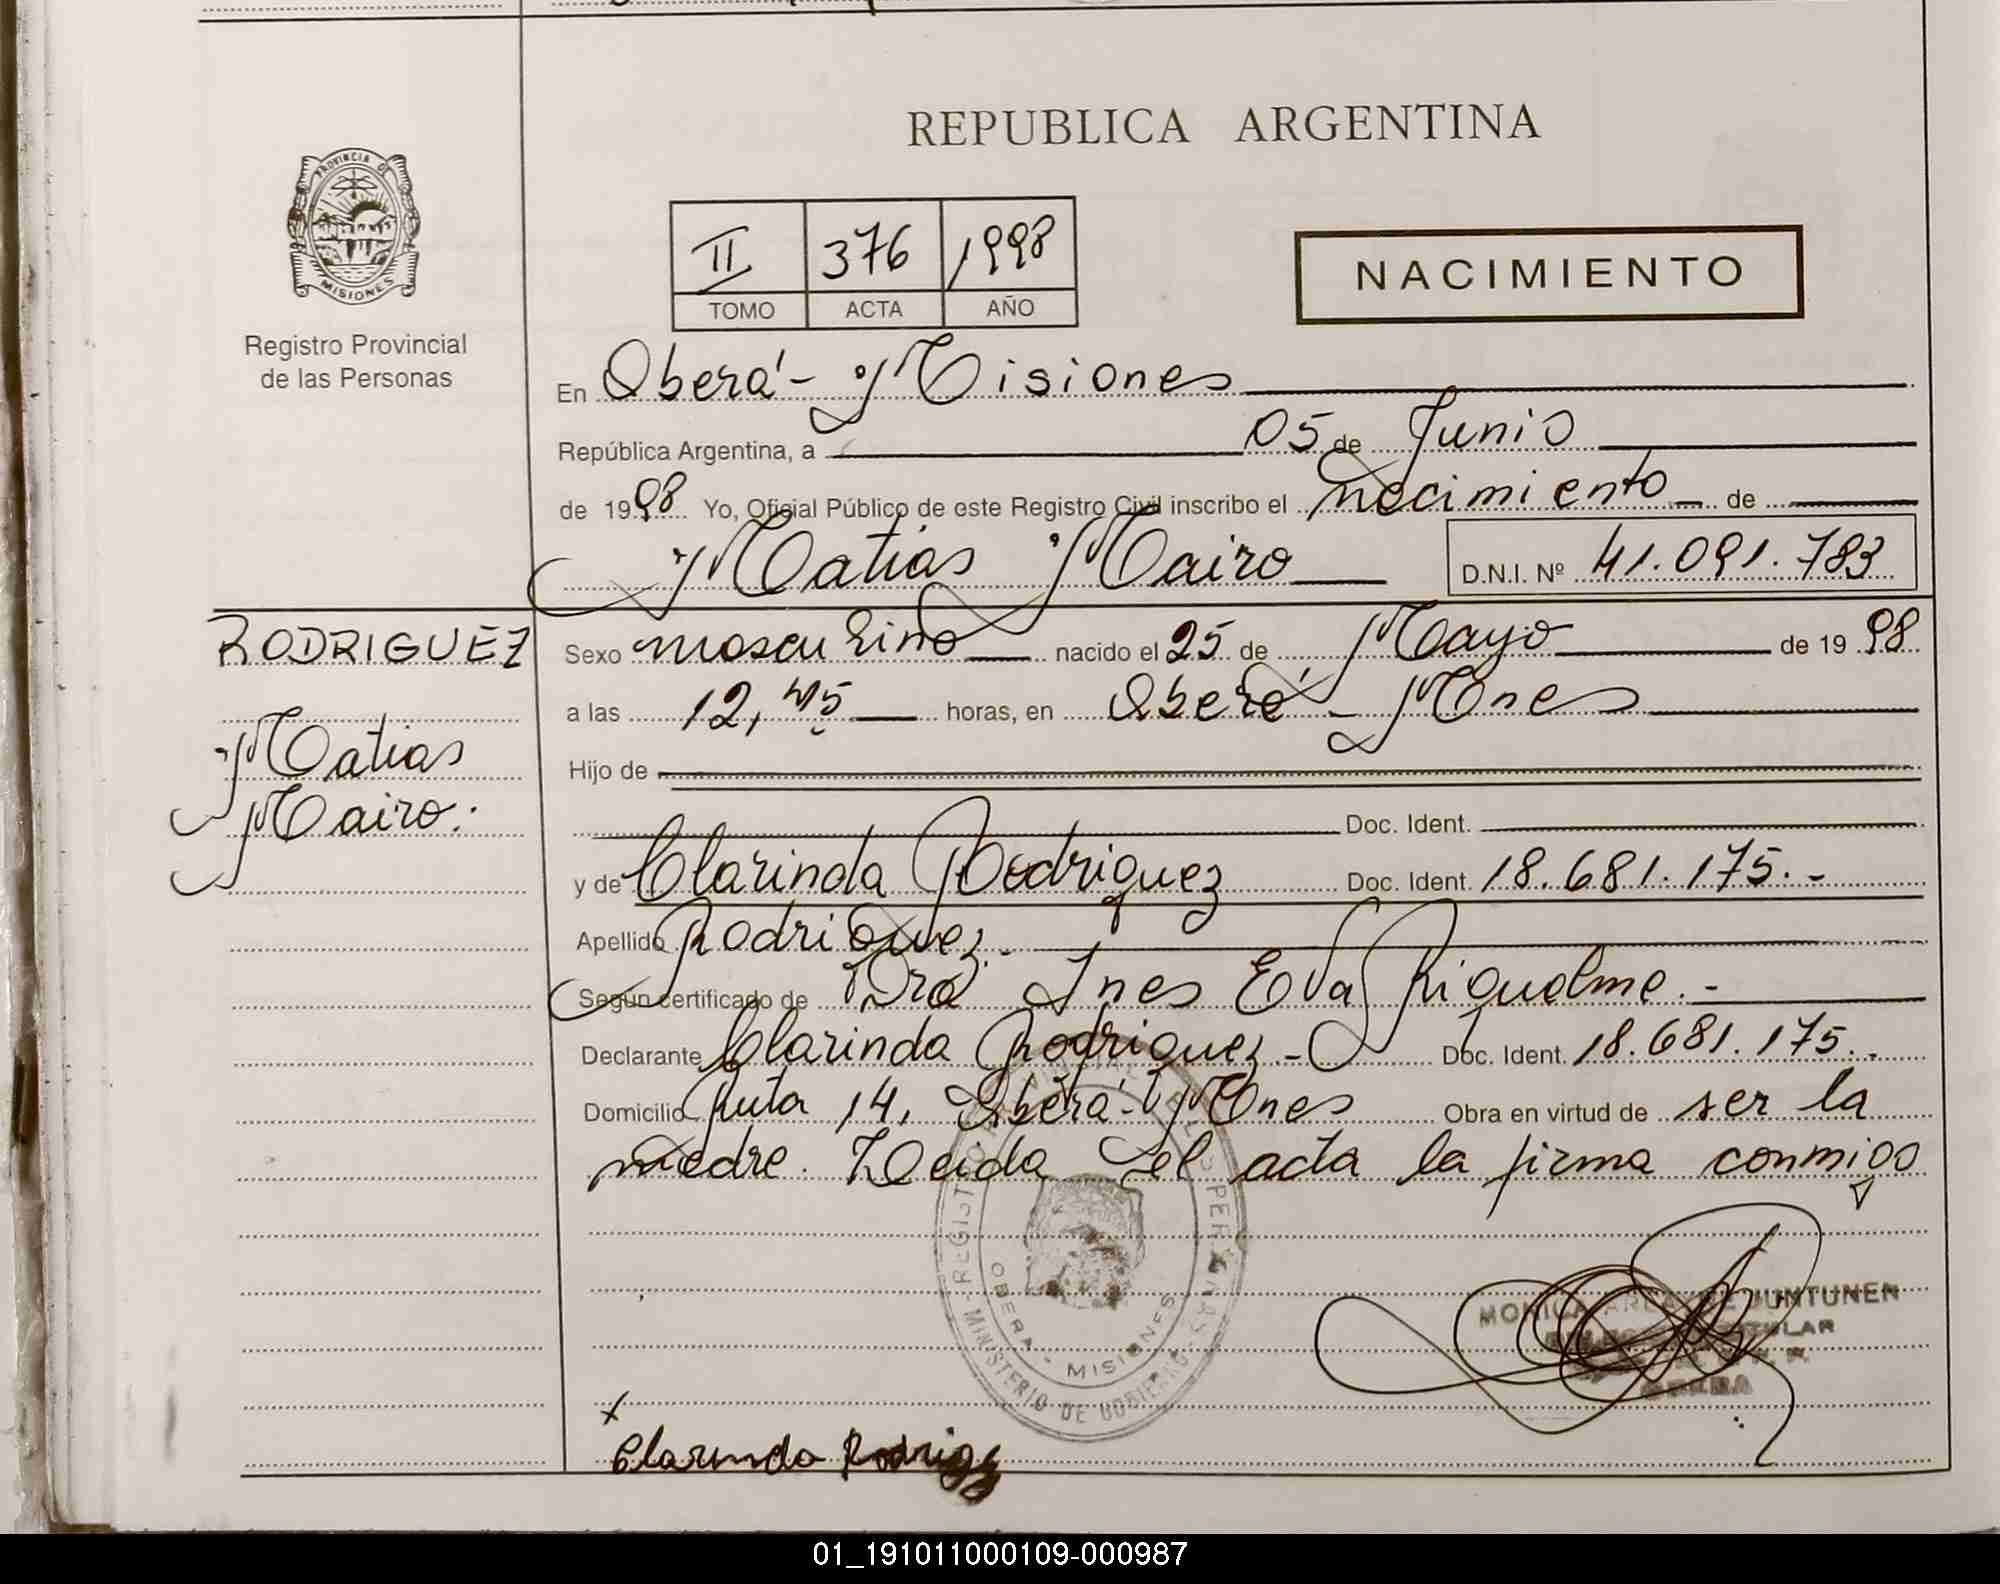 REPUBLICA ARGENTINA
PROVINCIA DE
MISIONES
Registro Provincial
de las Personas
II 376 1998
TOMO ACTA AÑO
NACIMIENTO
En Oberá - Misiones
República Argentina, a 05 de Junio
de 1998 Yo, Oficial Público de este Registro Civil inscribo el nacimiento de
Matias Mairo D.N.I. Nº 41.091.783
RODRIGUEZ
Matias
Mairo.
Sexo masculino nacido el 25 de Mayo de 1998
a las 12,45 horas, en Oberá - Mnes
Hijo de
Doc. Ident.
y de Clarinda Rodriguez Doc. Ident. 18.681.175.-
Apellido Rodriguez.-
Según certificado de Dra Ines Eva Riquelme.-
Declarante Clarinda Rodriguez - Doc. Ident. 18.681.175.-
Domicilio Ruta 14, Oberá - Mnes Obra en virtud de ser la
madre. Leida el acta la firma conmigo
OBERA - MISIONES
MINISTERIO DE GOBIERNO
MONICA DE JUNTUNEN
TITULAR
OBERA
x
Clarinda Rodrigz
01_191011000109-000987